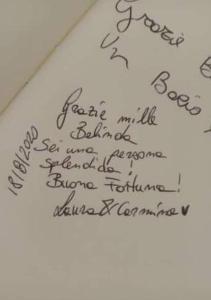 Grazie
Un
Bacio
Grazie mille
Belinda
Sei una persona
splendida!
Buona Fortuna!
Laura & Carmine ♥
18/8/2020